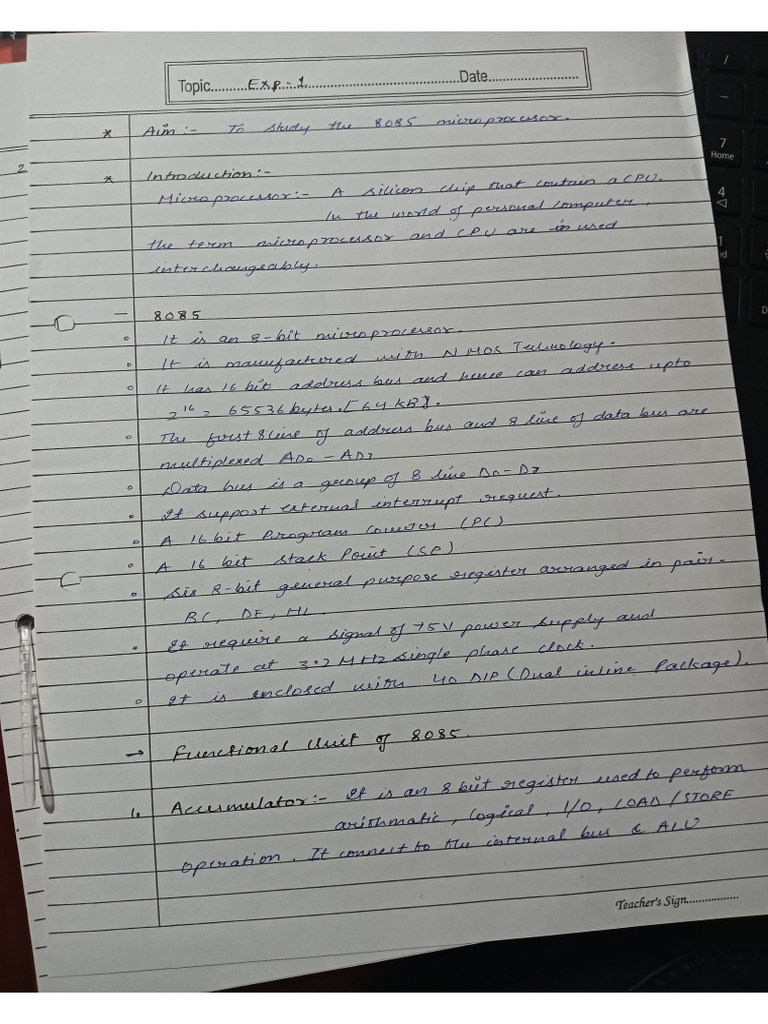 Topic..........Exp-1..........Date..........
* Aim:- To study the 8085 microprocessor.
2
* Introduction:-
Microprocessor:- A silicon chip that contain a CPU.
In the world of personal computer,
the term microprocessor and CPU are in used
interchangeably.
- 8085
o It is an 8-bit microprocessor.
o It is manufactured with N MOS Technology.
o It has 16 bit address bus and hence can address upto
2^16 = 65536 bytes. [64 KB].
o The first 8 line of address bus and 8 line of data bus are
multiplexed AD0 - AD7
o Data bus is a group of 8 line D0 - D7
o It support external interrupt request.
o A 16 bit Program Counter (PC)
o A 16 bit Stack Point (SP)
o Six 8-bit general purpose register arranged in pair.
BC, DE, HL.
o It require a signal of +5V power supply and
operate at 3.2 MHz single phase clock.
o It is enclosed with 40 DIP (Dual inline Package).
→ Functional Unit of 8085.
1. Accusmulator:- It is an 8 bit register used to perform
arithmatic, logical, I/O, LOAD/STORE
operation. It connect to the internal bus & ALU
Teacher's Sign.................
/
-
7
Home
4
1